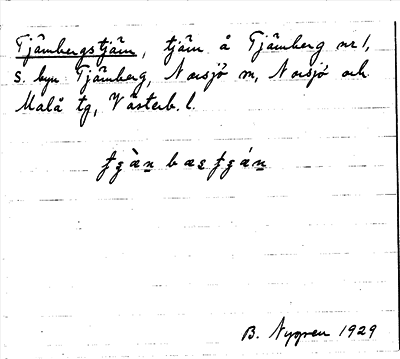 Tjämbergstjäm, tjäm å Tjämberg nr 1,
S. byn Tjämberg, Norsjö sn, Norsjö och
Malå tg, Västerb. l.
B. Nygren 1929